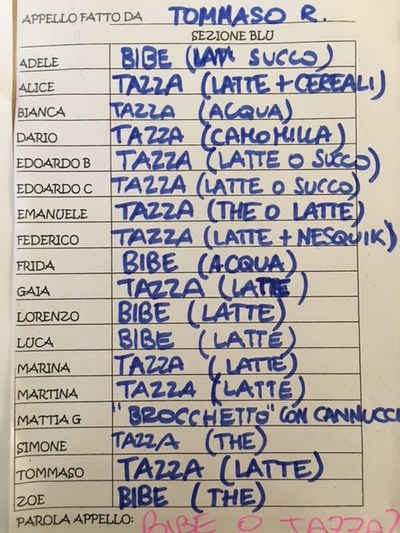 APPELLO FATTO DA TOMMASO R.
SEZIONE BLU
ADELE BIBE (SUCCO)
ALICE TAZZA (LATTE + CEREALI)
BIANCA TAZZA (ACQUA)
DARIO TAZZA (CAMOMILLA)
EDOARDO B TAZZA (LATTE O SUCCO)
EDOARDO C TAZZA (LATTE O SUCCO)
EMANUELE TAZZA (THE O LATTE)
FEDERICO TAZZA (LATTE + NESQUIK)
FRIDA BIBE (ACQUA)
GAIA TAZZA (LATTE)
LORENZO BIBE (LATTE)
LUCA BIBE (LATTE)
MARINA TAZZA (LATTE)
MARTINA TAZZA (LATTE)
MATTIA G "BROCCHETTO" CON CANNUCC
SIMONE TAZZA (THE)
TOMMASO TAZZA (LATTE)
ZOE BIBE (THE)
PAROLA APPELLO: BIBE O TAZZA?